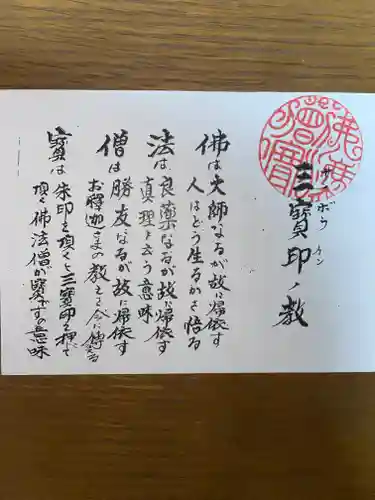 三寳印ノ教
サンボウイン
佛は大師なるが故に帰依す
人はどう生るかを悟る
法は良薬なるが故に帰依す
真理と云う意味
僧は勝友なるが故に帰依す
お釋迦さまの教えを今に傳える
寳は朱印を頂くと三寳印を押て
頂く佛法僧が寳ですの意味
佛法僧寳